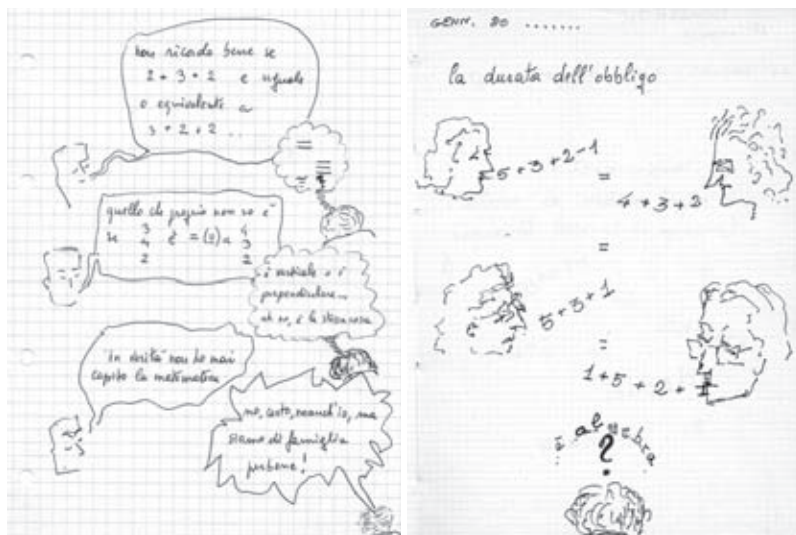 non ricordo bene se
2 + 3 + 2 e uguale
o equivalente a
3 + 2 + 2 ..
=
≡
quello che proprio non so è
se 3 4 2 è = (?) a 4 3 2
è verticale o è
perpendicolare...
ah no, è la stessa cosa
in verità non ho mai
capito la matematica
no, certo, neanch'io, ma
siamo di famiglia
perbene!
GENN. 80 .......
la durata dell'obbligo
5 + 3 + 2 - 1
=
4 + 3 + 2
=
5 + 3 + 1
=
1 + 5 + 2 + 1
è algebra
?